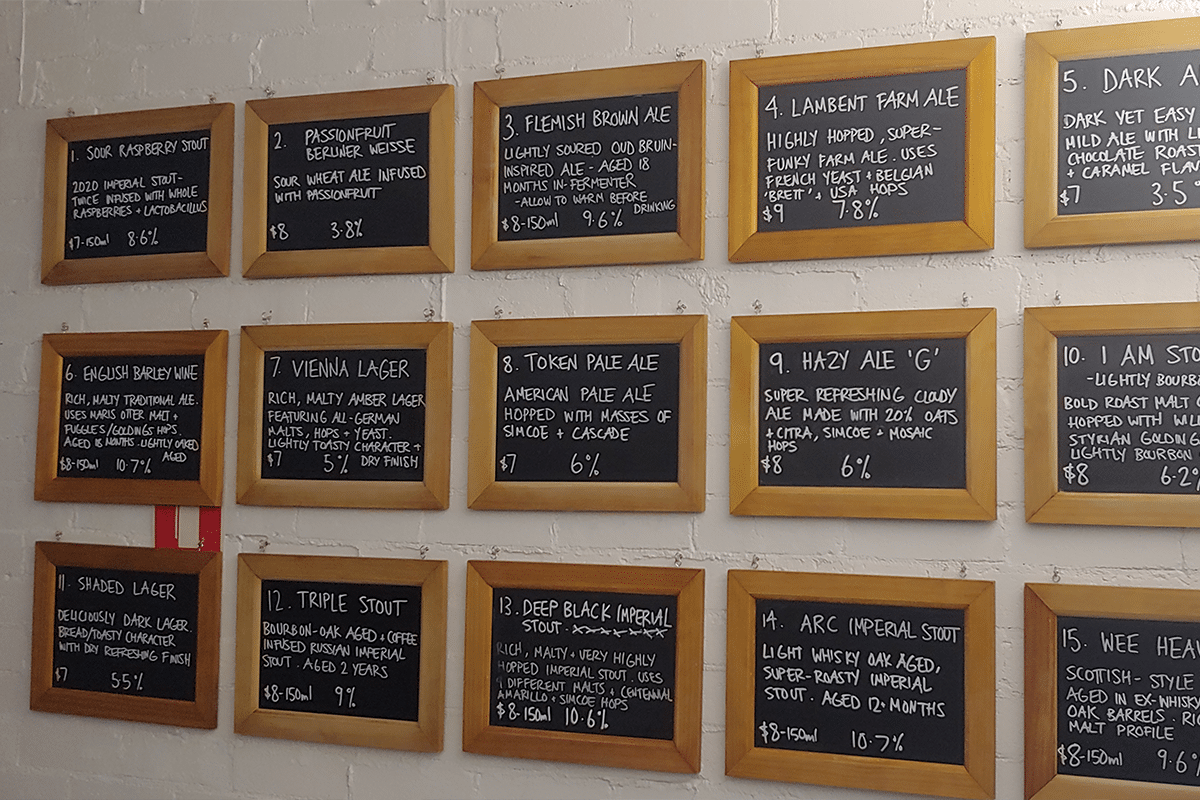 1. SOUR RASPBERRY STOUT
2020 IMPERIAL STOUT-
TWICE INFUSED WITH WHOLE
RASPBERRIES + LACTOBACILLUS
$7-150ml 8.6%
2. PASSIONFRUIT
BERLINER WEISSE
SOUR WHEAT ALE INFUSED
WITH PASSIONFRUIT
$8 3.8%
3. FLEMISH BROWN ALE
LIGHTLY SOURED OUD BRUIN-
INSPIRED ALE - AGED 18
MONTHS IN-FERMENTER
-ALLOW TO WARM BEFORE
DRINKING
$8-150ml 9.6%
4. LAMBENT FARM ALE
HIGHLY HOPPED, SUPER-
FUNKY FARM ALE. USES
FRENCH YEAST + BELGIAN
'BRETT' + USA HOPS
$9 7.8%
5. DARK A
DARK YET EASY
MILD ALE WITH L
CHOCOLATE ROAST
+ CARAMEL FLAV
$7 3.5
6. ENGLISH BARLEY WINE
RICH, MALTY TRADITIONAL ALE.
USES MARIS OTTER MALT +
FUGGLES/GOLDINGS HOPS.
AGED 18 MONTHS. LIGHTLY OAKED
AGED
$8-150ml 10.7%
7. VIENNA LAGER
RICH, MALTY AMBER LAGER
FEATURING ALL-GERMAN
MALTS, HOPS + YEAST.
LIGHTLY TOASTY CHARACTER +
$7 5% DRY FINISH
8. TOKEN PALE ALE
AMERICAN PALE ALE
HOPPED WITH MASSES OF
SIMCOE + CASCADE
$7 6%
9. HAZY ALE 'G'
SUPER REFRESHING CLOUDY
ALE MADE WITH 20% OATS
+ CITRA, SIMCOE + MOSAIC
HOPS
$8 6%
10. I AM STO
-LIGHTLY BOURB
BOLD ROAST MALT
HOPPED WITH WIL
STYRIAN GOLDING
LIGHTLY BOURBON
$8 6.2%
11. SHADED LAGER
DELICIOUSLY DARK LAGER.
BREAD/TOASTY CHARACTER
WITH DRY REFRESHING FINISH
$7 5.5%
12. TRIPLE STOUT
BOURBON-OAK AGED + COFFEE
INFUSED RUSSIAN IMPERIAL
STOUT. AGED 2 YEARS
$8-150ml 9%
13. DEEP BLACK IMPERIAL
STOUT.
RICH, MALTY + VERY HIGHLY
HOPPED IMPERIAL STOUT. USES
9 DIFFERENT MALTS + CENTENNIAL
AMARILLO + SIMCOE HOPS
$8-150ml 10.6%
14. ARC IMPERIAL STOUT
LIGHT WHISKY OAK AGED,
SUPER-ROASTY IMPERIAL
STOUT. AGED 12+ MONTHS
$8-150ml 10.7%
15. WEE HEAV
SCOTTISH-STYLE
AGED IN EX-WHISK
OAK BARRELS. R
MALT PROFILE
$8-150ml 9.6%